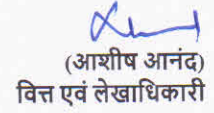 (आशीष आनंद)
वित्त एवं लेखाधिकारी